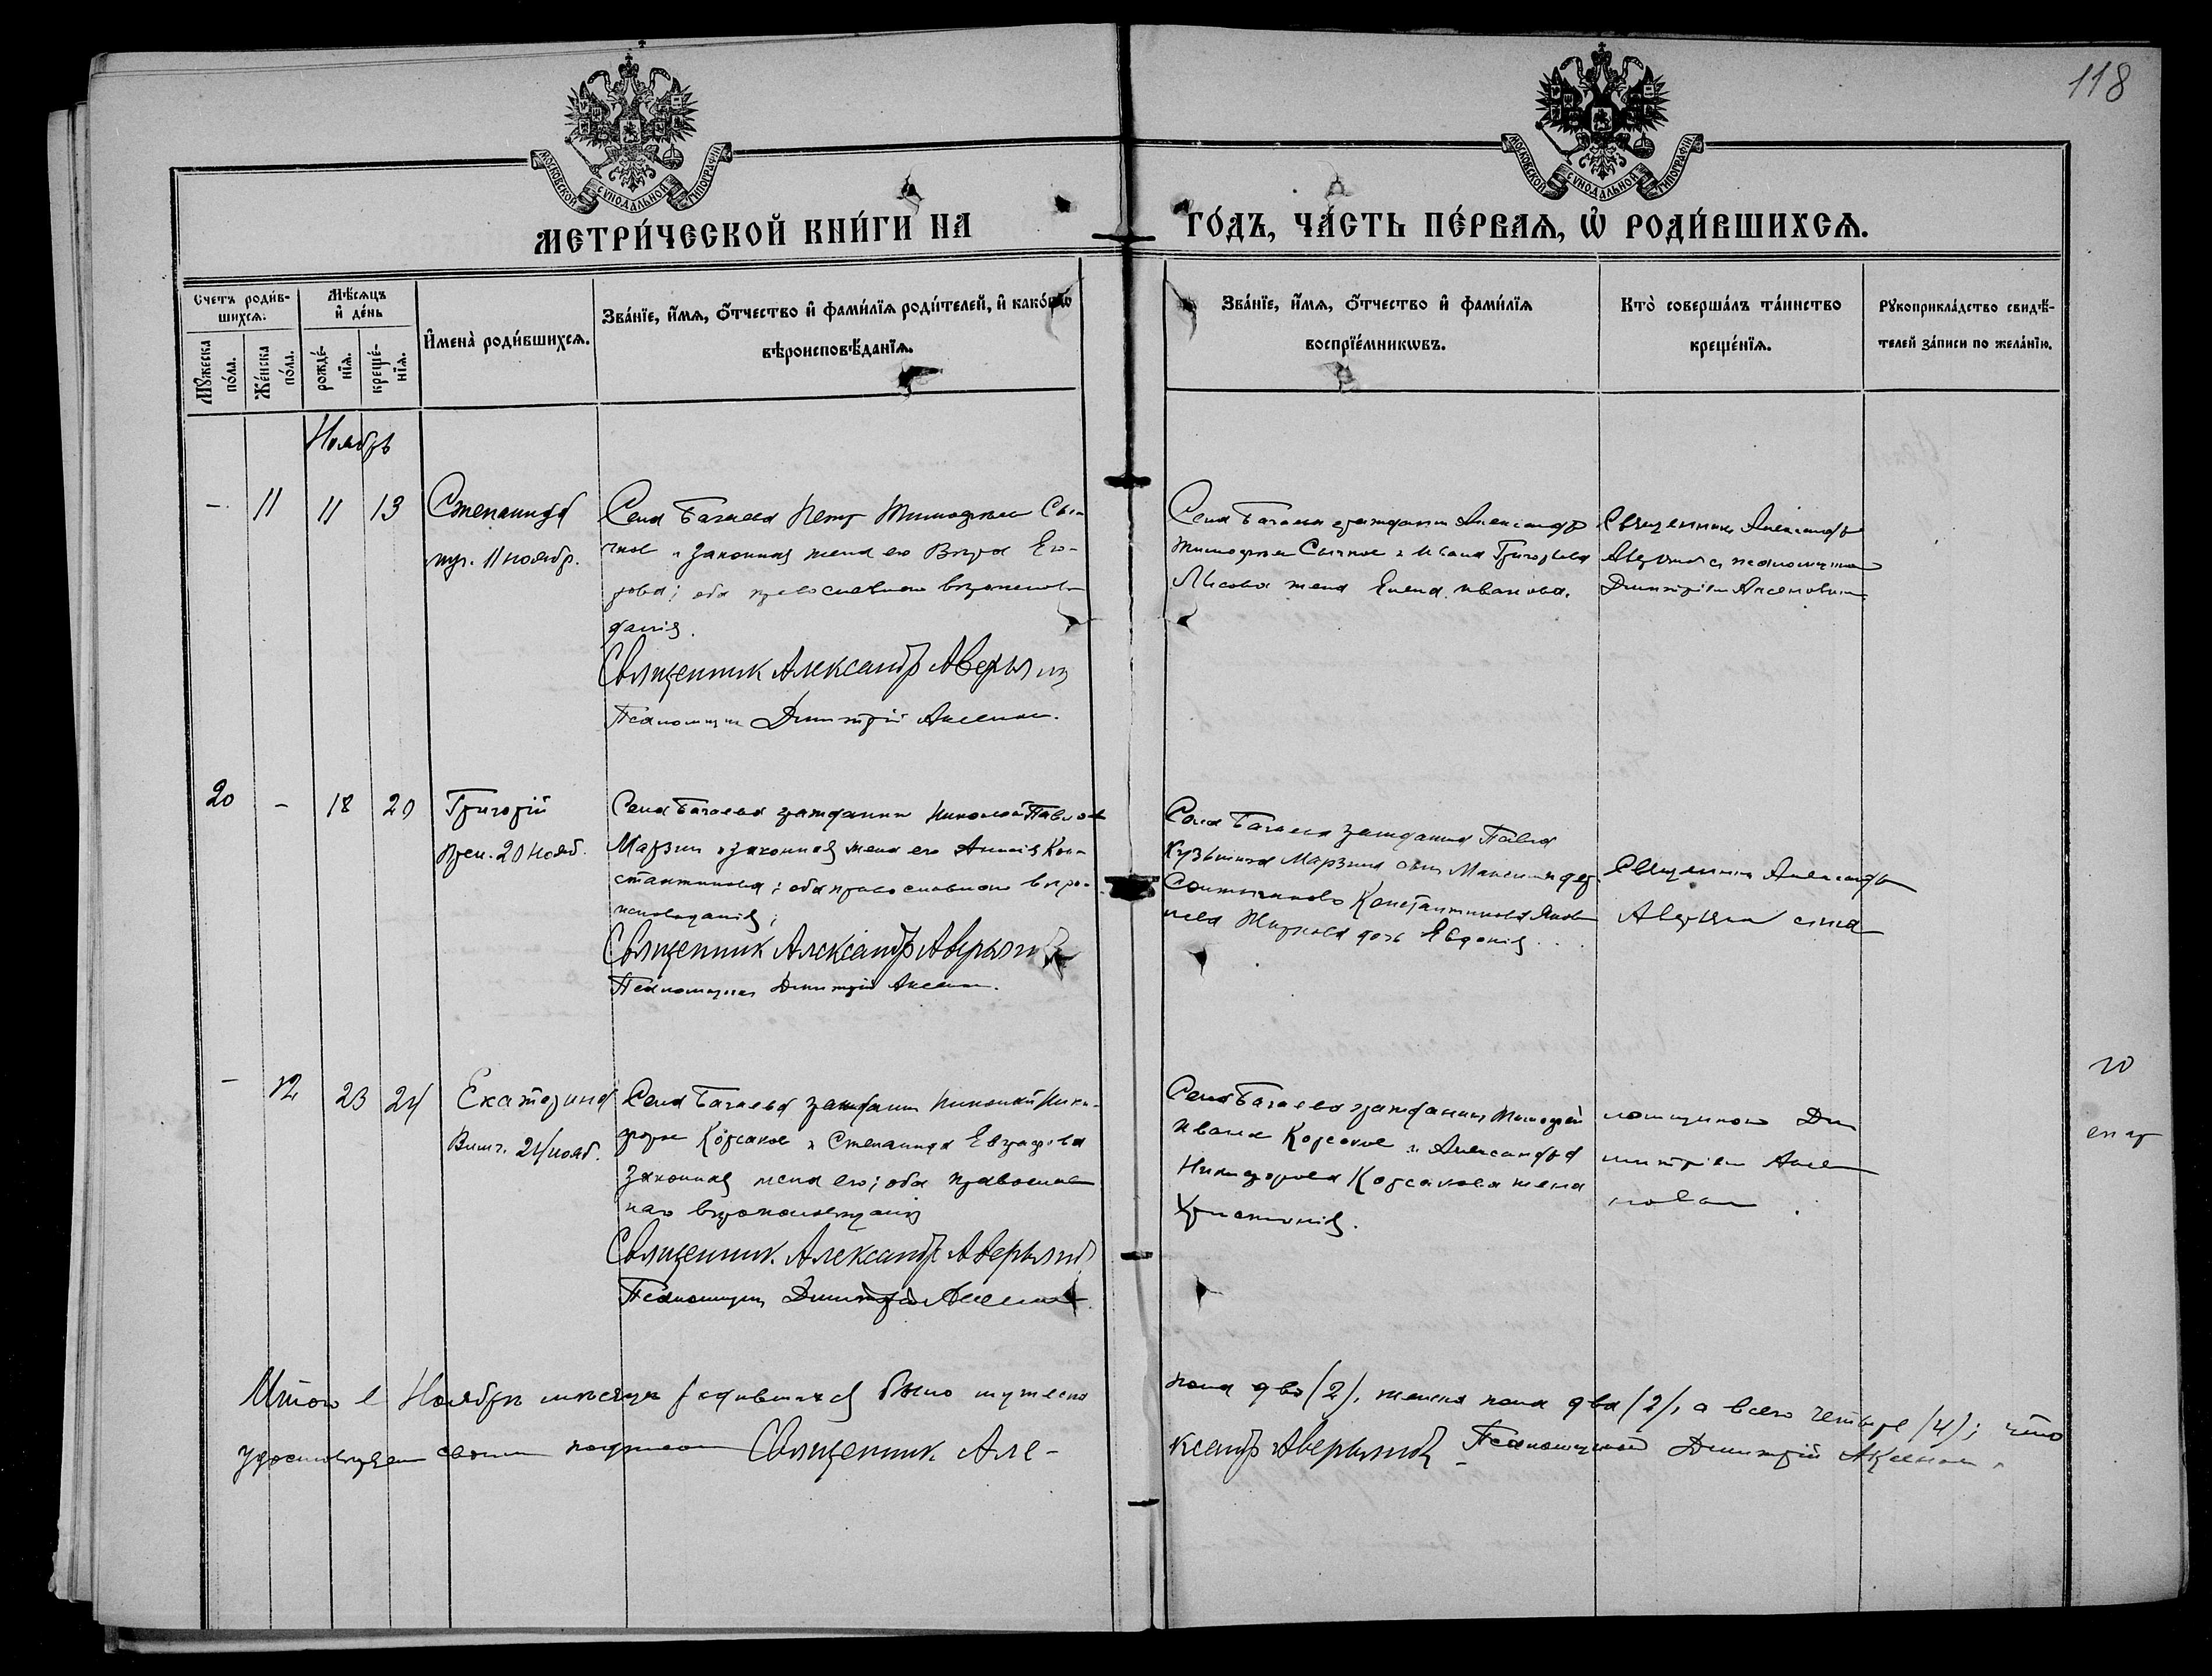 118
МОСКОВСКОЙ СѴНОДАЛЬНОЙ ТИПОГРАФІИ
МОСКОВСКОЙ СѴНОДАЛЬНОЙ ТИПОГРАФІИ
МЕТРИ́ЧЕСКОЙ КНИ́ГИ НА
ГО́ДЪ, ЧА́СТЬ ПЕ́РВАѦ, Ѽ РОДИ́ВШИХСѦ.
Счетъ роди́в-
шихсѧ.
Мꙋжеска
по́ла.
Же́нска
по́ла.
Мѣ́сѧцъ
и҆ де́нь
рожде́-
нїѧ.
креще́-
нїѧ.
И҆мена̀ роди́вшихсѧ.
Зва́нїе, и҆́мѧ, ѻ҆́тчество и҆ фами́лїѧ роди́телей, и҆ како́гѡ
вѣроисповѣ́данїѧ.
Зва́нїе, и҆́мѧ, ѻ҆́тчество и҆ фами́лїѧ
воспрїе́мникѡвъ.
Кто̀ соверша́лъ та́инство
креще́нїѧ.
Рꙋкоприкла́дство свидѣ́-
телей за́писи по жела́нїю.
Ноябрь
- 11 11 13
Степанида
муч. 11 ноябр.
Села Багаева Петр Тимофеев Сыч-
ков и законная жена его Вера Его-
рова; оба православного вероиспове
дания.
Священник Александр Аверьянов
Псаломщик Димитрий Аксенов.
Села Багаева граждане Александр
Тимофеев Сычков и Ивана Григорьева
Лисова жена Елена Иванова.
Священник Александр
Аверьянов с псаломщиком
Димитрием Аксеновым.
20 - 18 20
Григорій
20 нояб.
Села Багаева гражданин Николай Павлов
Марзин и законная жена его Анна Кон-
стантинова; оба православного веро-
исповедания;
Священник Александр Аверьянов
Псаломщик Димитрий Аксенов.
Села Багаева гражданина Павла
Кузьмина Марзина сын и дер.
Константинова
дочь Евдокия
Священник Александр
Аверьянов
- 12 23 24
Екатерина
24 нояб.
Села Багаева гражданин Николай Ники-
форов Корсаков и Степанида Евграфова
законная жена его; оба православ
наго вероисповедания
Священник Александр Аверьянов
Псаломщик Димитрий Аксенов
Села Багаева граждане Тимофей
Иванов Корсаков и Александра
Никифорова Корсакова жена
ломщиком Ди
митрием Аксе
новым
Итого в Ноябре месяце родившихся было мужеска
пола два (2), женска пола два (2), а всего четыре (4); что
удостоверяем своим подписом Священник Але-
ксандр Аверьянов Псаломщик Димитрий Аксенов